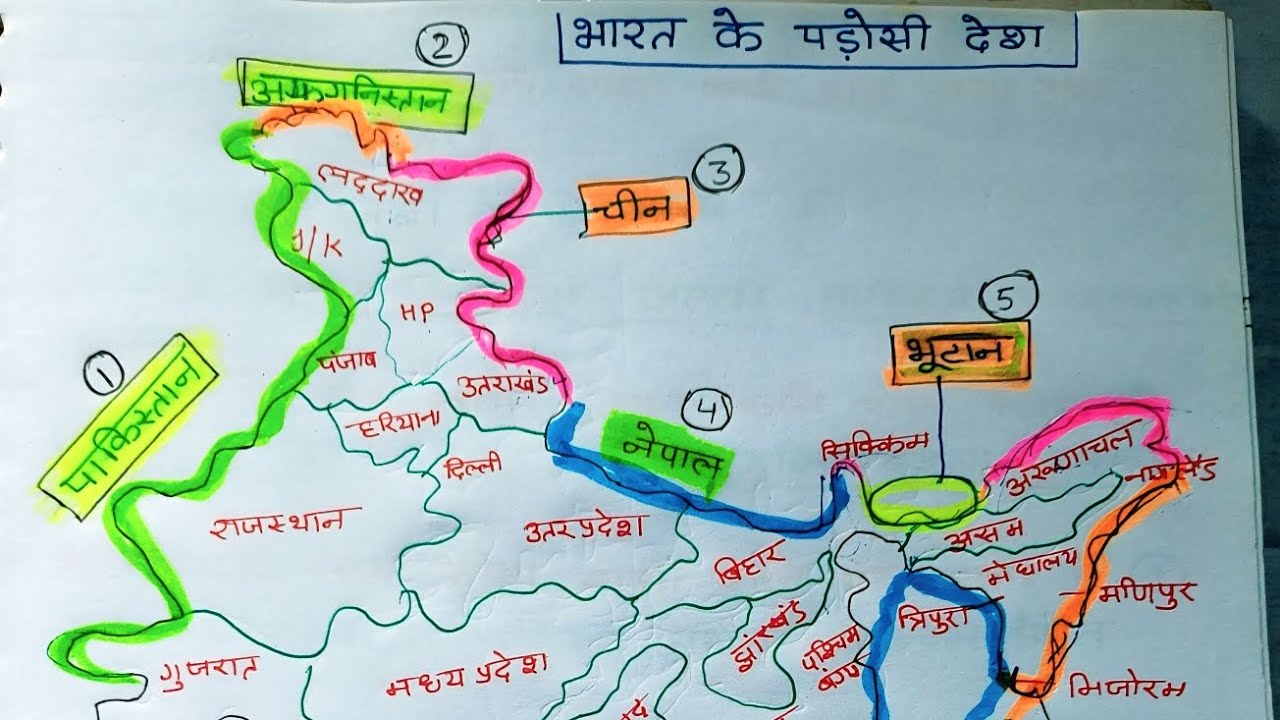 भारत के पड़ोसी देश
②
अफगनिस्तान
③
लद्दाख
चीन
J/K
⑤
HP
भूटान
①
पाकिस्तान
पंजाब
उतराखंड
④
हरियाना
नेपाल
सिक्किम
दिल्ली
अरुणाचल
राजस्थान
उतर प्रदेश
असम
बिहार
मेघालय
मणिपुर
त्रिपुरा
झारखंड
पश्चिम
गुजरात
मध्य प्रदेश
मिजोरम